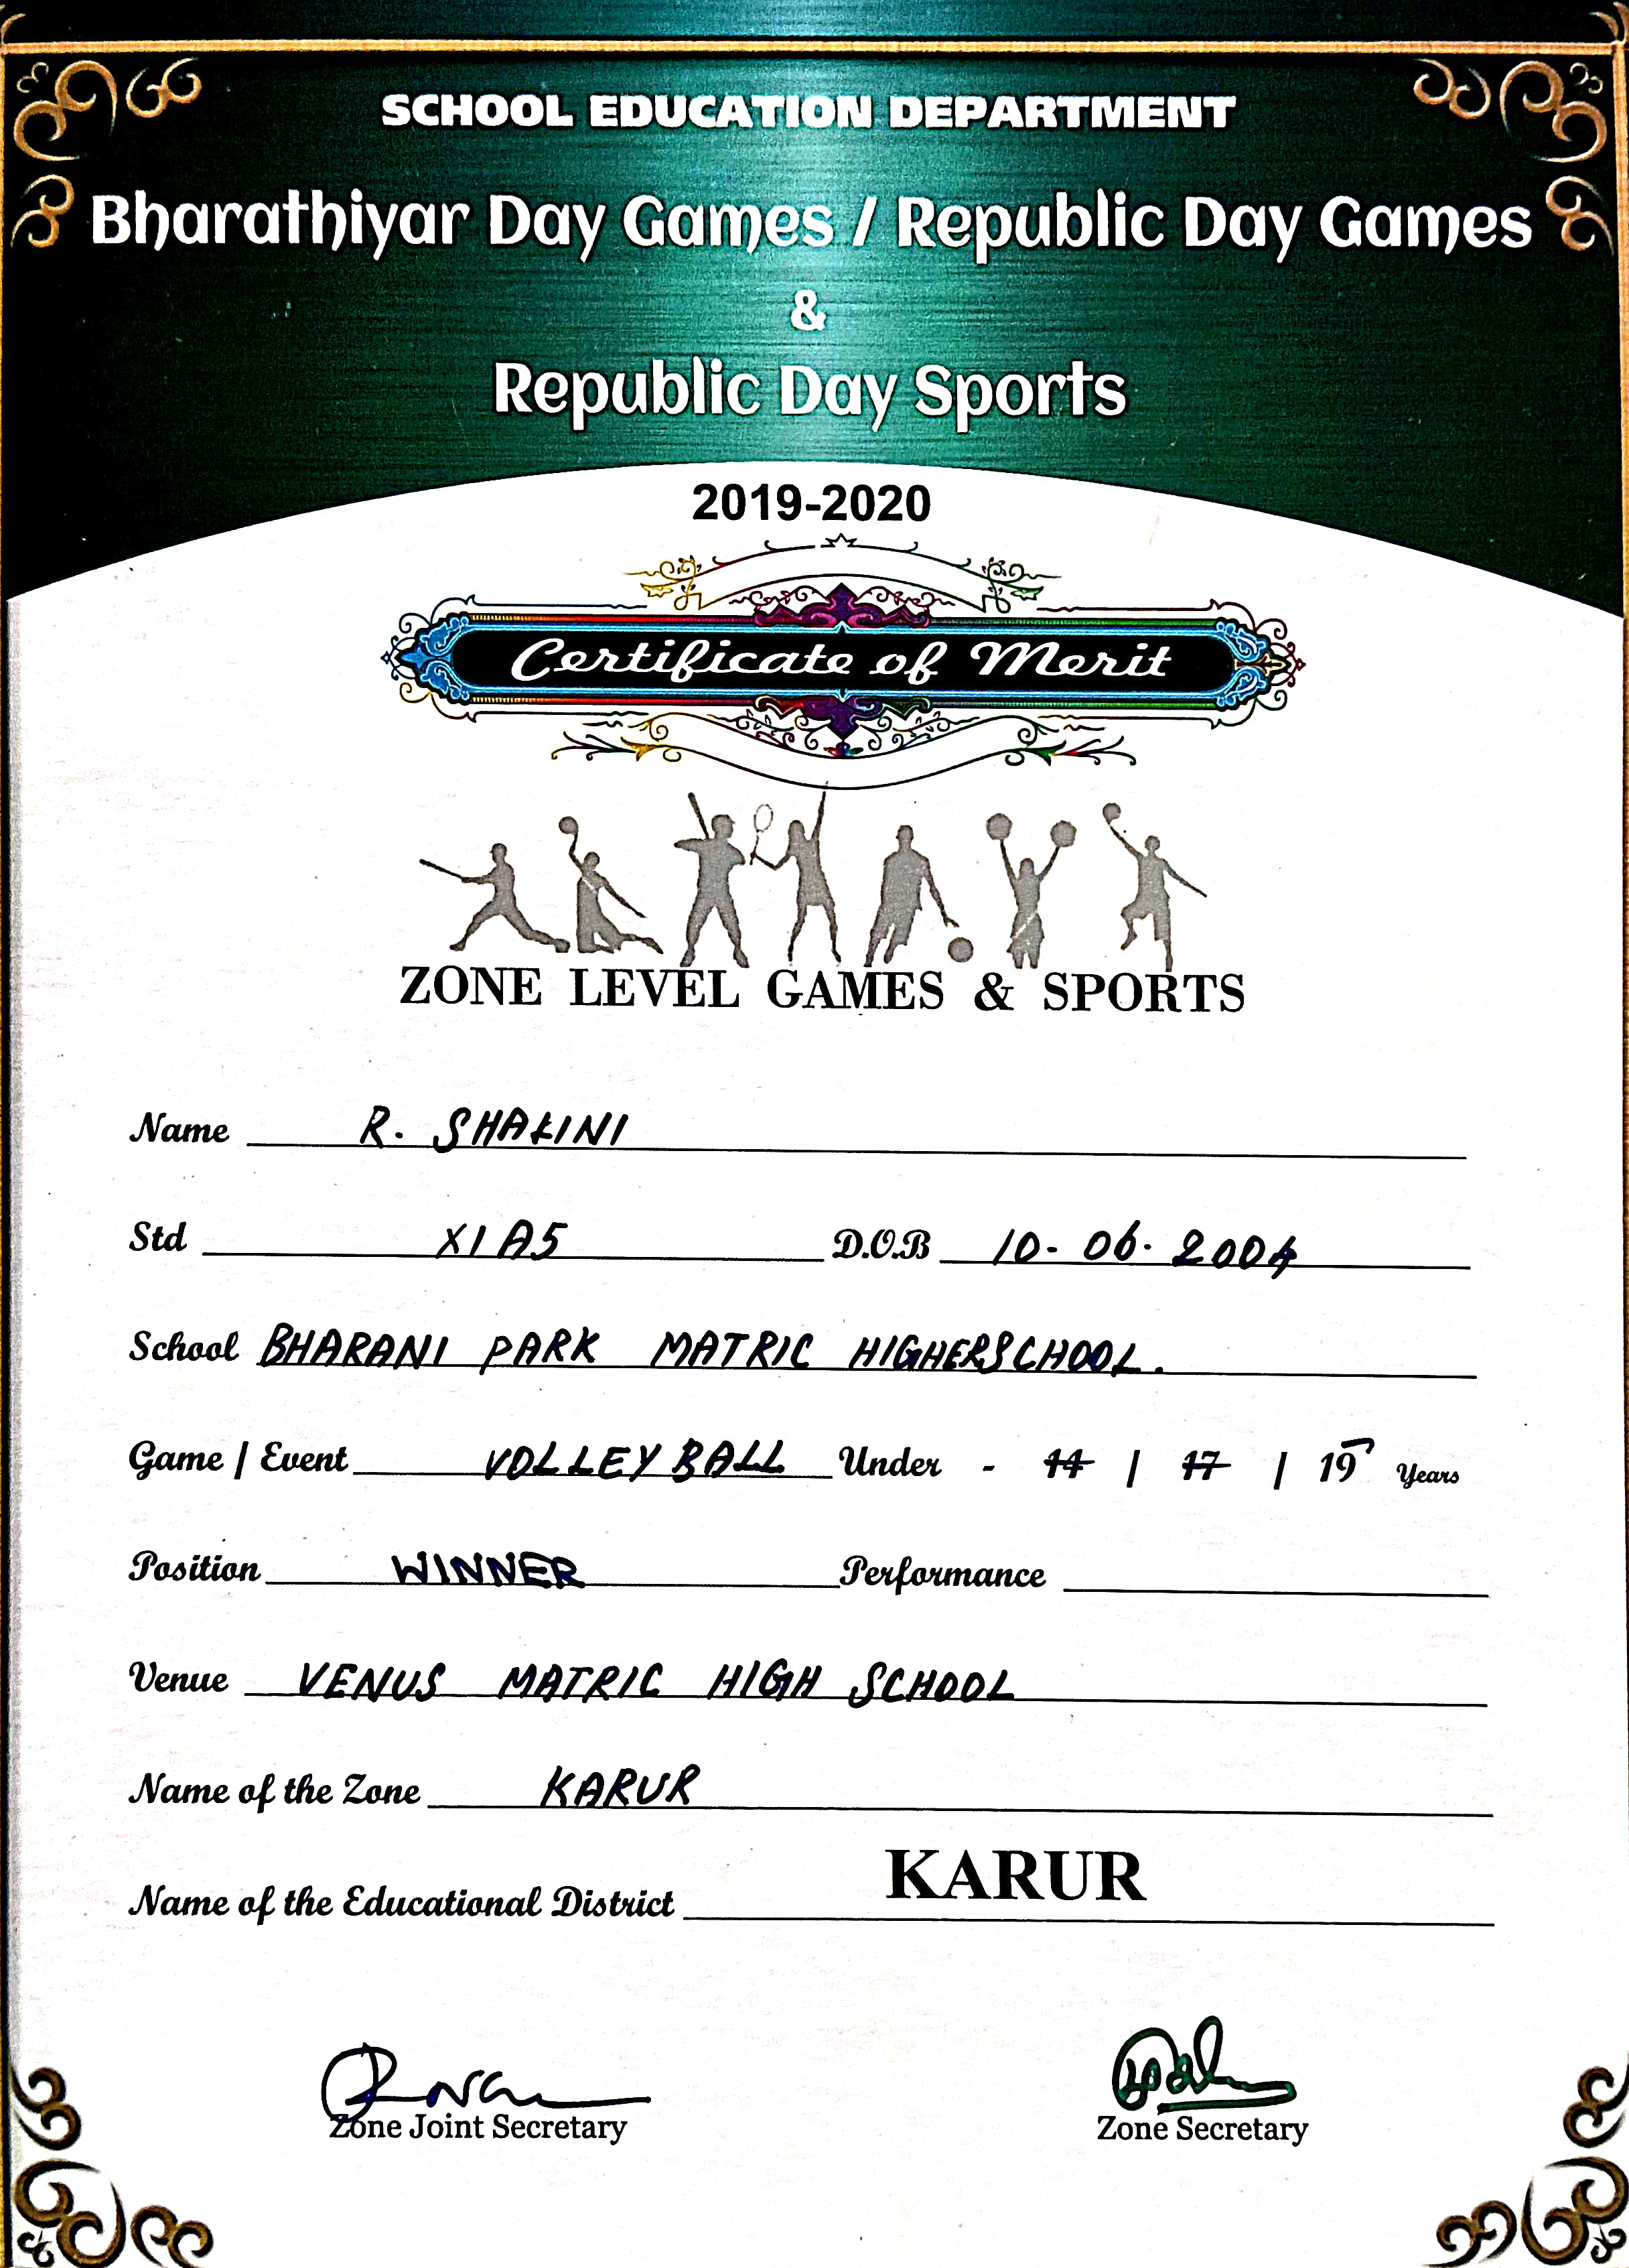 SCHOOL EDUCATION DEPARTMENT
Bharathiyar Day Games / Republic Day Games
&
Republic Day Sports
2019-2020
Certificate of Merit
ZONE LEVEL GAMES & SPORTS
Name R. SHALINI
Std XI A5 D.O.B 10-06-2004
School BHARANI PARK MATRIC HIGHERSCHOOL.
Game / Event VOLLEY BALL Under - 14 / 17 / 19 Years
Position WINNER Performance
Venue VENUS MATRIC HIGH SCHOOL
Name of the Zone KARUR
Name of the Educational District KARUR
Zone Joint Secretary Zone Secretary